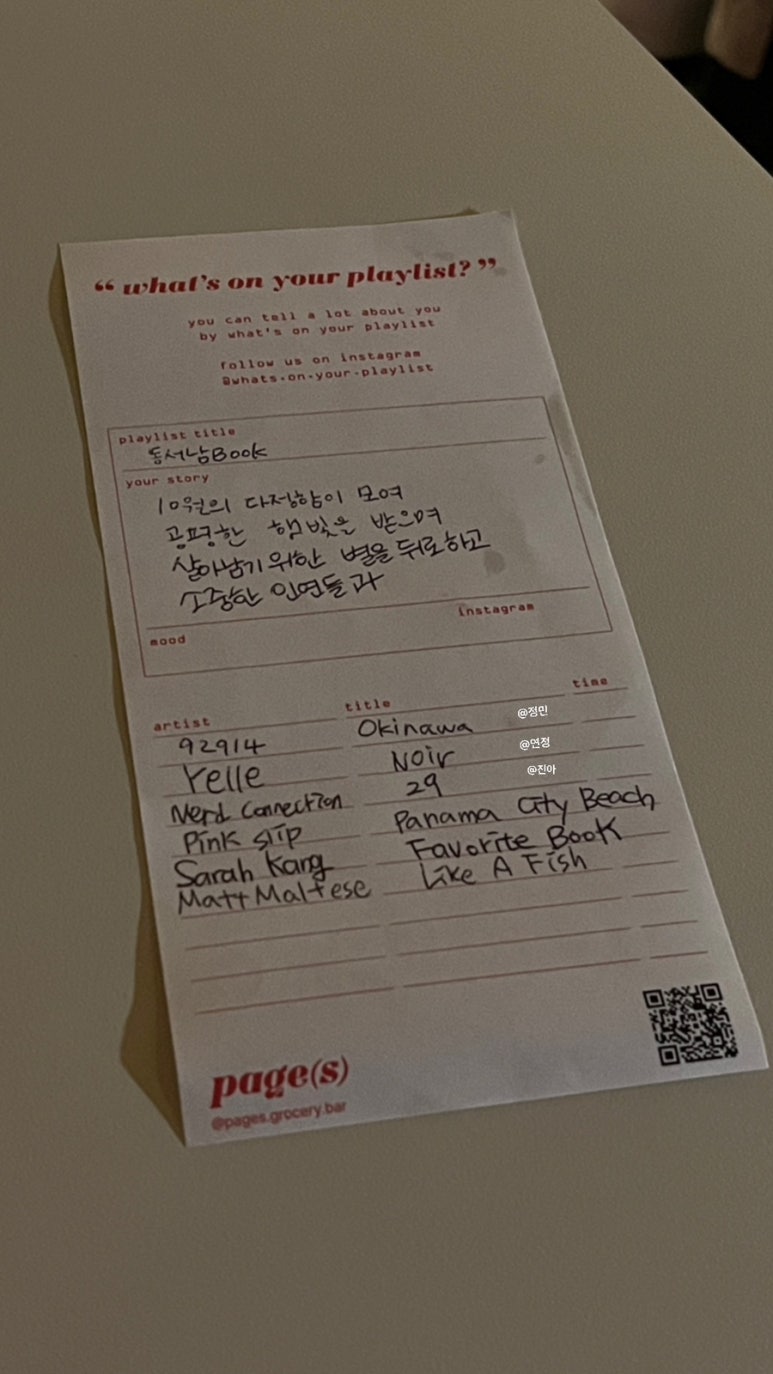 “ what's on your playlist? ”
you can tell a lot about you
by what's on your playlist
follow us on instagram
@whats.on.your.playlist
playlist title
동서남Book
your story
10월의 다정함이 모여
공평한 햇빛을 받으며
살아남기 위한 별을 뒤로하고
소중한 인연들과
mood
instagram
artist title time
92914 Okinawa @정민
Yelle Noir @연정
Nerd Connection 29 @진아
Pink Slip Panama City Beach
Sarah Kang Favorite Book
Matt Maltese Like A Fish
page(s)
@pages.grocery.bar